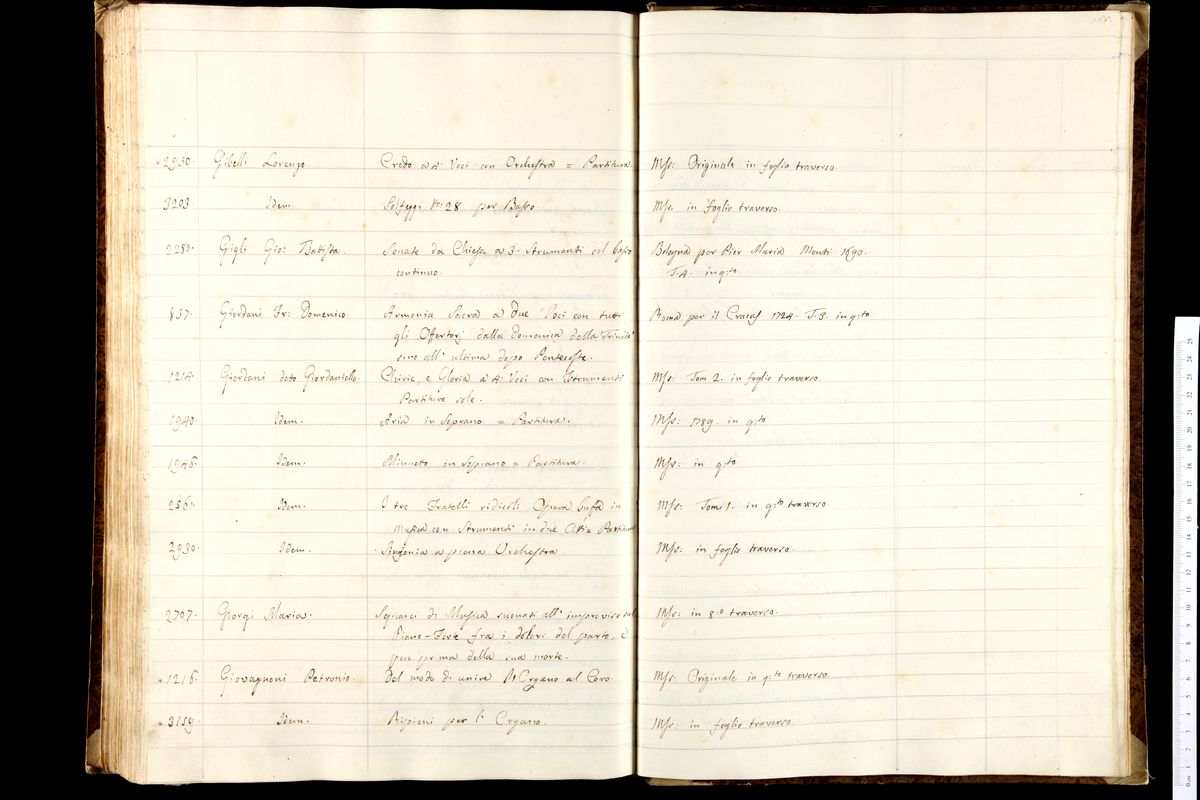 166.
2950. Gibelli Lorenzo. Credo a 4. Voci con Orchestra = Partitura. Mss: Originale in foglio traverso.
3203 Idem. Solfeggi N: 28 per Basso. Mss: in foglio traverso.
2280. Gigli Gio: Battista. Sonate da Chiesa a 3. Strumenti col basso Bologna per Pier Maria Monti 1690.
continuo. T. 4. in q:to
837. Giordani Fr: Domenico. Armonia Sacra a due Voci con tutti Roma per il Cracas 1724. T. 3. in q:to
gli Ofertorj dalla Domenica della Trinità
sino all' ultima dopo Pentecoste.
1214. Giordani deto Giordaniello. Chirie, e Gloria a 4. Voci con Istrumenti Mss: Tom 2. in foglio traverso
Partiture sole.
1940. Idem. Aria in Soprano = Partitura. Mss: 1789. in q:to
1946. Idem. Minuetto in Soprano = Partitura. Mss: in q:to
2561. Idem. I tre Fratelli ridicoli Opera buffa in Mss: Tomi 1. in q:to traverso.
Musica con Strumenti in due Atti = Partitura
2930. Idem. Sinfonia a piena Orchestra. Mss: in foglio traverso.
2707. Giorgi Maria. Squarci di Musica suonati all' improviso sul Mss: in 8:o traverso.
Piano-Forte fra i dolori del parto, e
poco prima della sua morte.
1216. Giovagnoni Petronio. Del modo di unire l'Organo al Coro. Mss: Originale in q:to traverso.
3159. Idem. Ripieni per l' Organo. Mss: in foglio traverso.